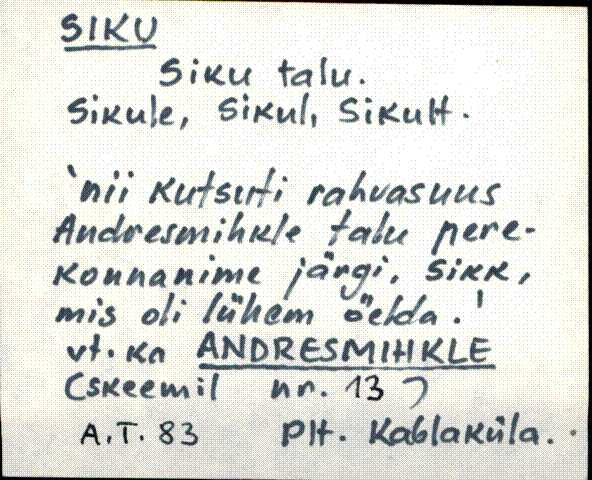 SIKU
Siku talu.
Sikule, Sikul, Sikult.
'nii kutsuti rahvasuus
Andresmihkle talu pere-
konnanime järgi, Sikk,
mis oli lühem öelda.'
vt. ka ANDRESMIHKLE
(skeemil nr. 13)
A.T. 83 Plt. Kablaküla.